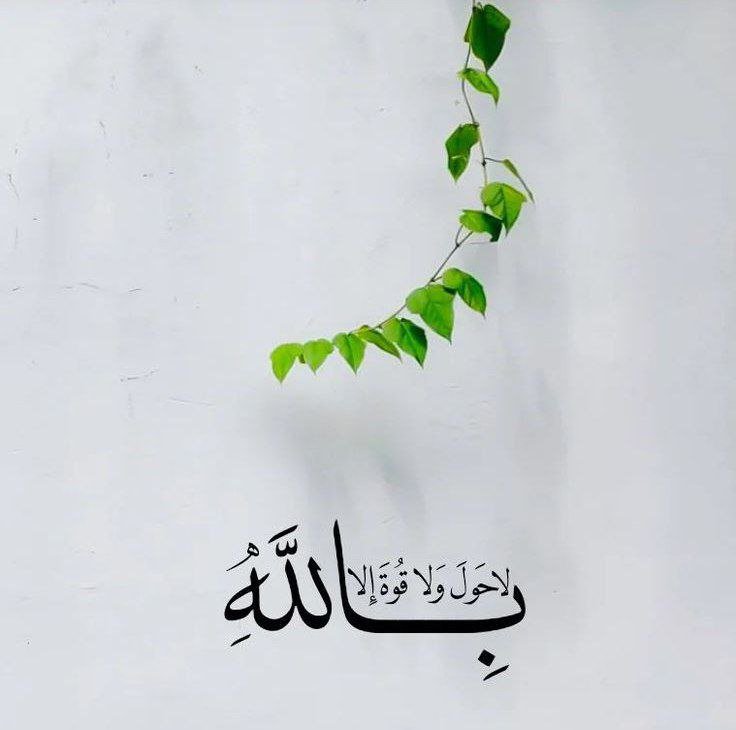 لا حَولَ وَلا قُوةَ إِلا
بِاللَّهِ